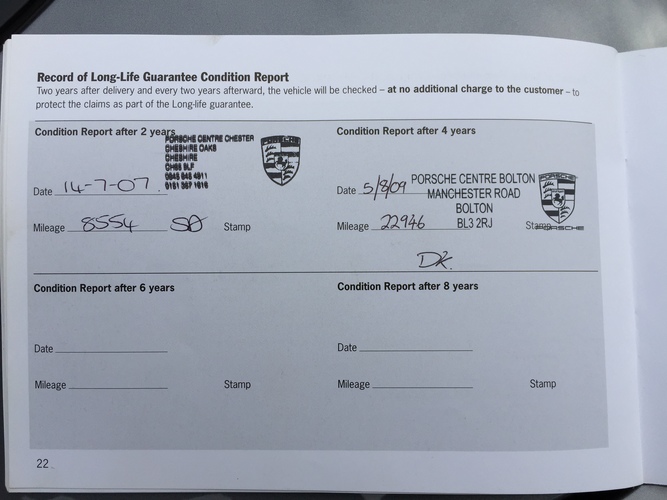 Record of Long-Life Guarantee Condition Report
Two years after delivery and every two years afterward, the vehicle will be checked – at no additional charge to the customer – to
protect the claims as part of the Long-life guarantee.
Condition Report after 2 years
PORSCHE CENTRE CHESTER
CHESHIRE OAKS
CHESHIRE
PORSCHE
Date 14-7-07
Mileage 8554
Stamp
Condition Report after 4 years
Date 5/8/09
PORSCHE CENTRE BOLTON
MANCHESTER ROAD
BOLTON
BL3 2RJ
PORSCHE
Mileage 22946
Stamp
PORSCHE
DK.
Condition Report after 6 years
Date
Mileage
Stamp
Condition Report after 8 years
Date
Mileage
Stamp
22